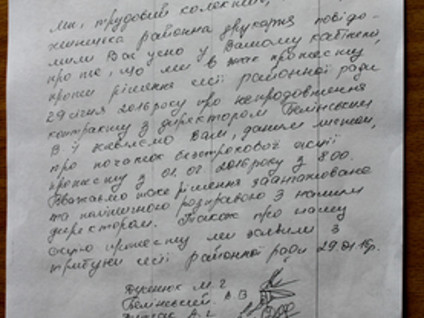 Ми, трудовий колектив,
районна друкарня повідо-
мили Вас усно у Вашому кабінеті,
про те, що ми в знак протесту,
проти рішення сесії районної ради
29 січня 2016 року про непродовження
контракту з директором Белінським
В.Й. заявляємо Вам, даним листом,
про початок безстрокової акції
протесту з 01.02.2016 року з 8.00.
Вважаємо таке рішення заангажоване
та політичного розправою з нашим
директором. Також про нашу
акцію протесту ми заявили з
трибуни сесії районної ради 29.01.16р.
М. Г
Белінський. В. В